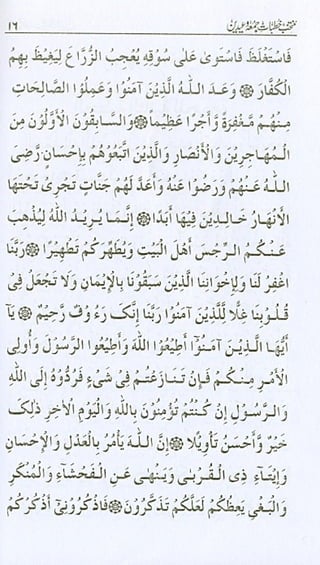 منتخب خطبات جمعہ و عیدین ۱۶
فَاسْتَغْلَظَ فَاسْتَوىٰ عَلٰى سُوْقِهٖ يُعْجِبُ الزُّرَّاعَ لِيَغِيْظَ بِهِمُ
الْكُفَّارَ ۞ وَعَدَ اللهُ الَّذِيْنَ آمَنُوْا وَعَمِلُوا الصَّالِحَاتِ
مِنْهُمْ مَّغْفِرَةً وَّأَجْرًا عَظِيْمًا ۞ وَالسَّابِقُوْنَ الْأَوَّلُوْنَ مِنَ
الْمُهَاجِرِيْنَ وَالْأَنْصَارِ وَالَّذِيْنَ اتَّبَعُوْهُمْ بِإِحْسَانٍ رَّضِيَ
اللهُ عَنْهُمْ وَرَضُوْا عَنْهُ وَأَعَدَّ لَهُمْ جَنَّاتٍ تَجْرِيْ تَحْتَهَا
الْأَنْهَارُ خَالِدِيْنَ فِيْهَا أَبَدًا ۞ إِنَّمَا يُرِيْدُ اللهُ لِيُذْهِبَ
عَنْكُمُ الرِّجْسَ أَهْلَ الْبَيْتِ وَيُطَهِّرَكُمْ تَطْهِيْرًا ۞ رَبَّنَا
اغْفِرْ لَنَا وَلِإِخْوَانِنَا الَّذِيْنَ سَبَقُوْنَا بِالْإِيْمَانِ وَلَا تَجْعَلْ فِيْ
قُلُوْبِنَا غِلًّا لِّلَّذِيْنَ آمَنُوْا رَبَّنَا إِنَّكَ رَءُوْفٌ رَّحِيْمٌ ۞ يَآ
أَيُّهَا الَّذِيْنَ آمَنُوْآ أَطِيْعُوا اللهَ وَأَطِيْعُوا الرَّسُوْلَ وَأُولِى
الْأَمْرِ مِنْكُمْ فَإِنْ تَنَازَعْتُمْ فِيْ شَيْءٍ فَرُدُّوْهُ إِلَى اللهِ
وَالرَّسُوْلِ إِنْ كُنْتُمْ تُؤْمِنُوْنَ بِاللهِ وَالْيَوْمِ الْآخِرِ ذٰلِكَ
خَيْرٌ وَّأَحْسَنُ تَأْوِيْلًا ۞ إِنَّ اللهَ يَأْمُرُ بِالْعَدْلِ وَالْإِحْسَانِ
وَإِيْتَآءِ ذِي الْقُرْبٰى وَيَنْهٰى عَنِ الْفَحْشَآءِ وَالْمُنْكَرِ
وَالْبَغْيِ يَعِظُكُمْ لَعَلَّكُمْ تَذَكَّرُوْنَ ۞ فَاذْكُرُوْنِيْٓ أَذْكُرْكُمْ